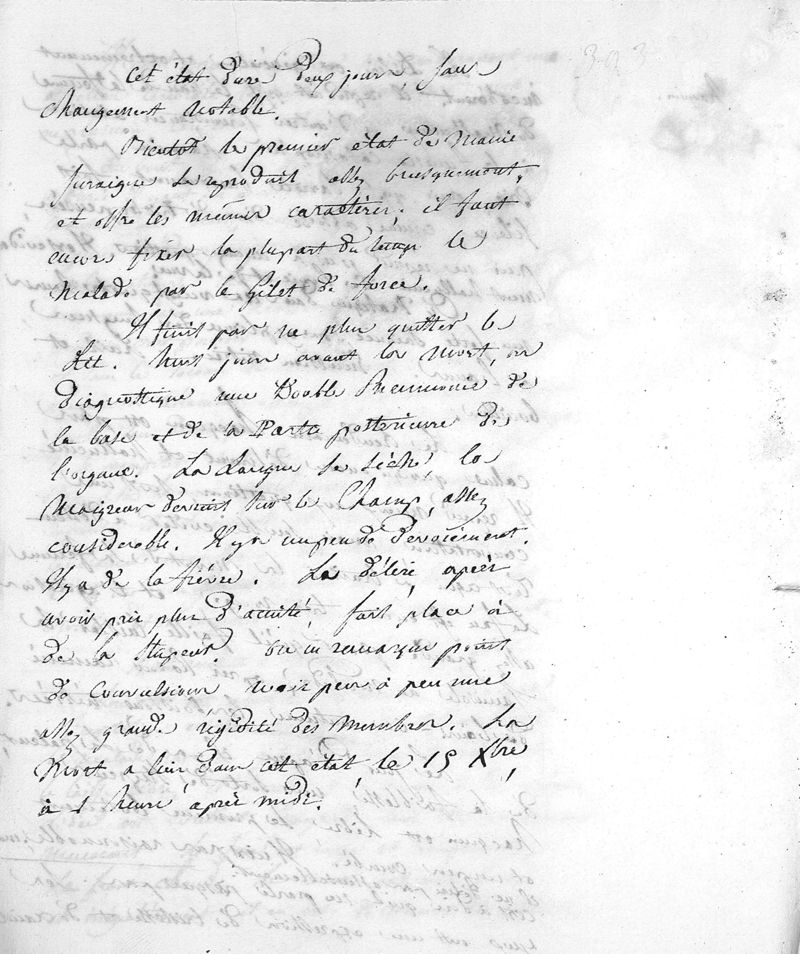 Cet état dure deux jours sans
Changement notable.
Bientôt le premier état de manie
suraigue se reproduit assez brusquement,
et offre les mêmes caractères. il faut
encore fixer la plupart du temps le
Malade par le Gilet de force.
Il finit par ne plus quitter le
Lit. huit jours avant la mort, on
diagnostique une Double Pneumonie de
la base et de la Partie posterieure de
l'organe. La Langue se sèche, la
Maigreur devient sur le Champ, assez
considerable. Il y a un peu de Devoiement.
Il y a de la fièvre. Le délire, après
avoir pris plus d'acuité, fait place à
de la Stupeur. On ne remarque point
de Convulsions mais peu à peu une
assez grande rigidité des membres. La
Mort a lieu dans cet état le 15 Xbre
à 1 heure après midi.